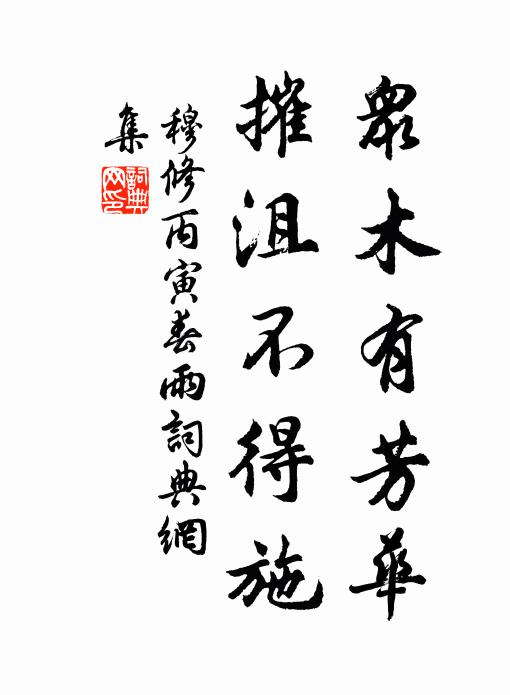 眾木有芳華
摧沮不得施
穆修丙寅春雨詞典網
集
詞典网印